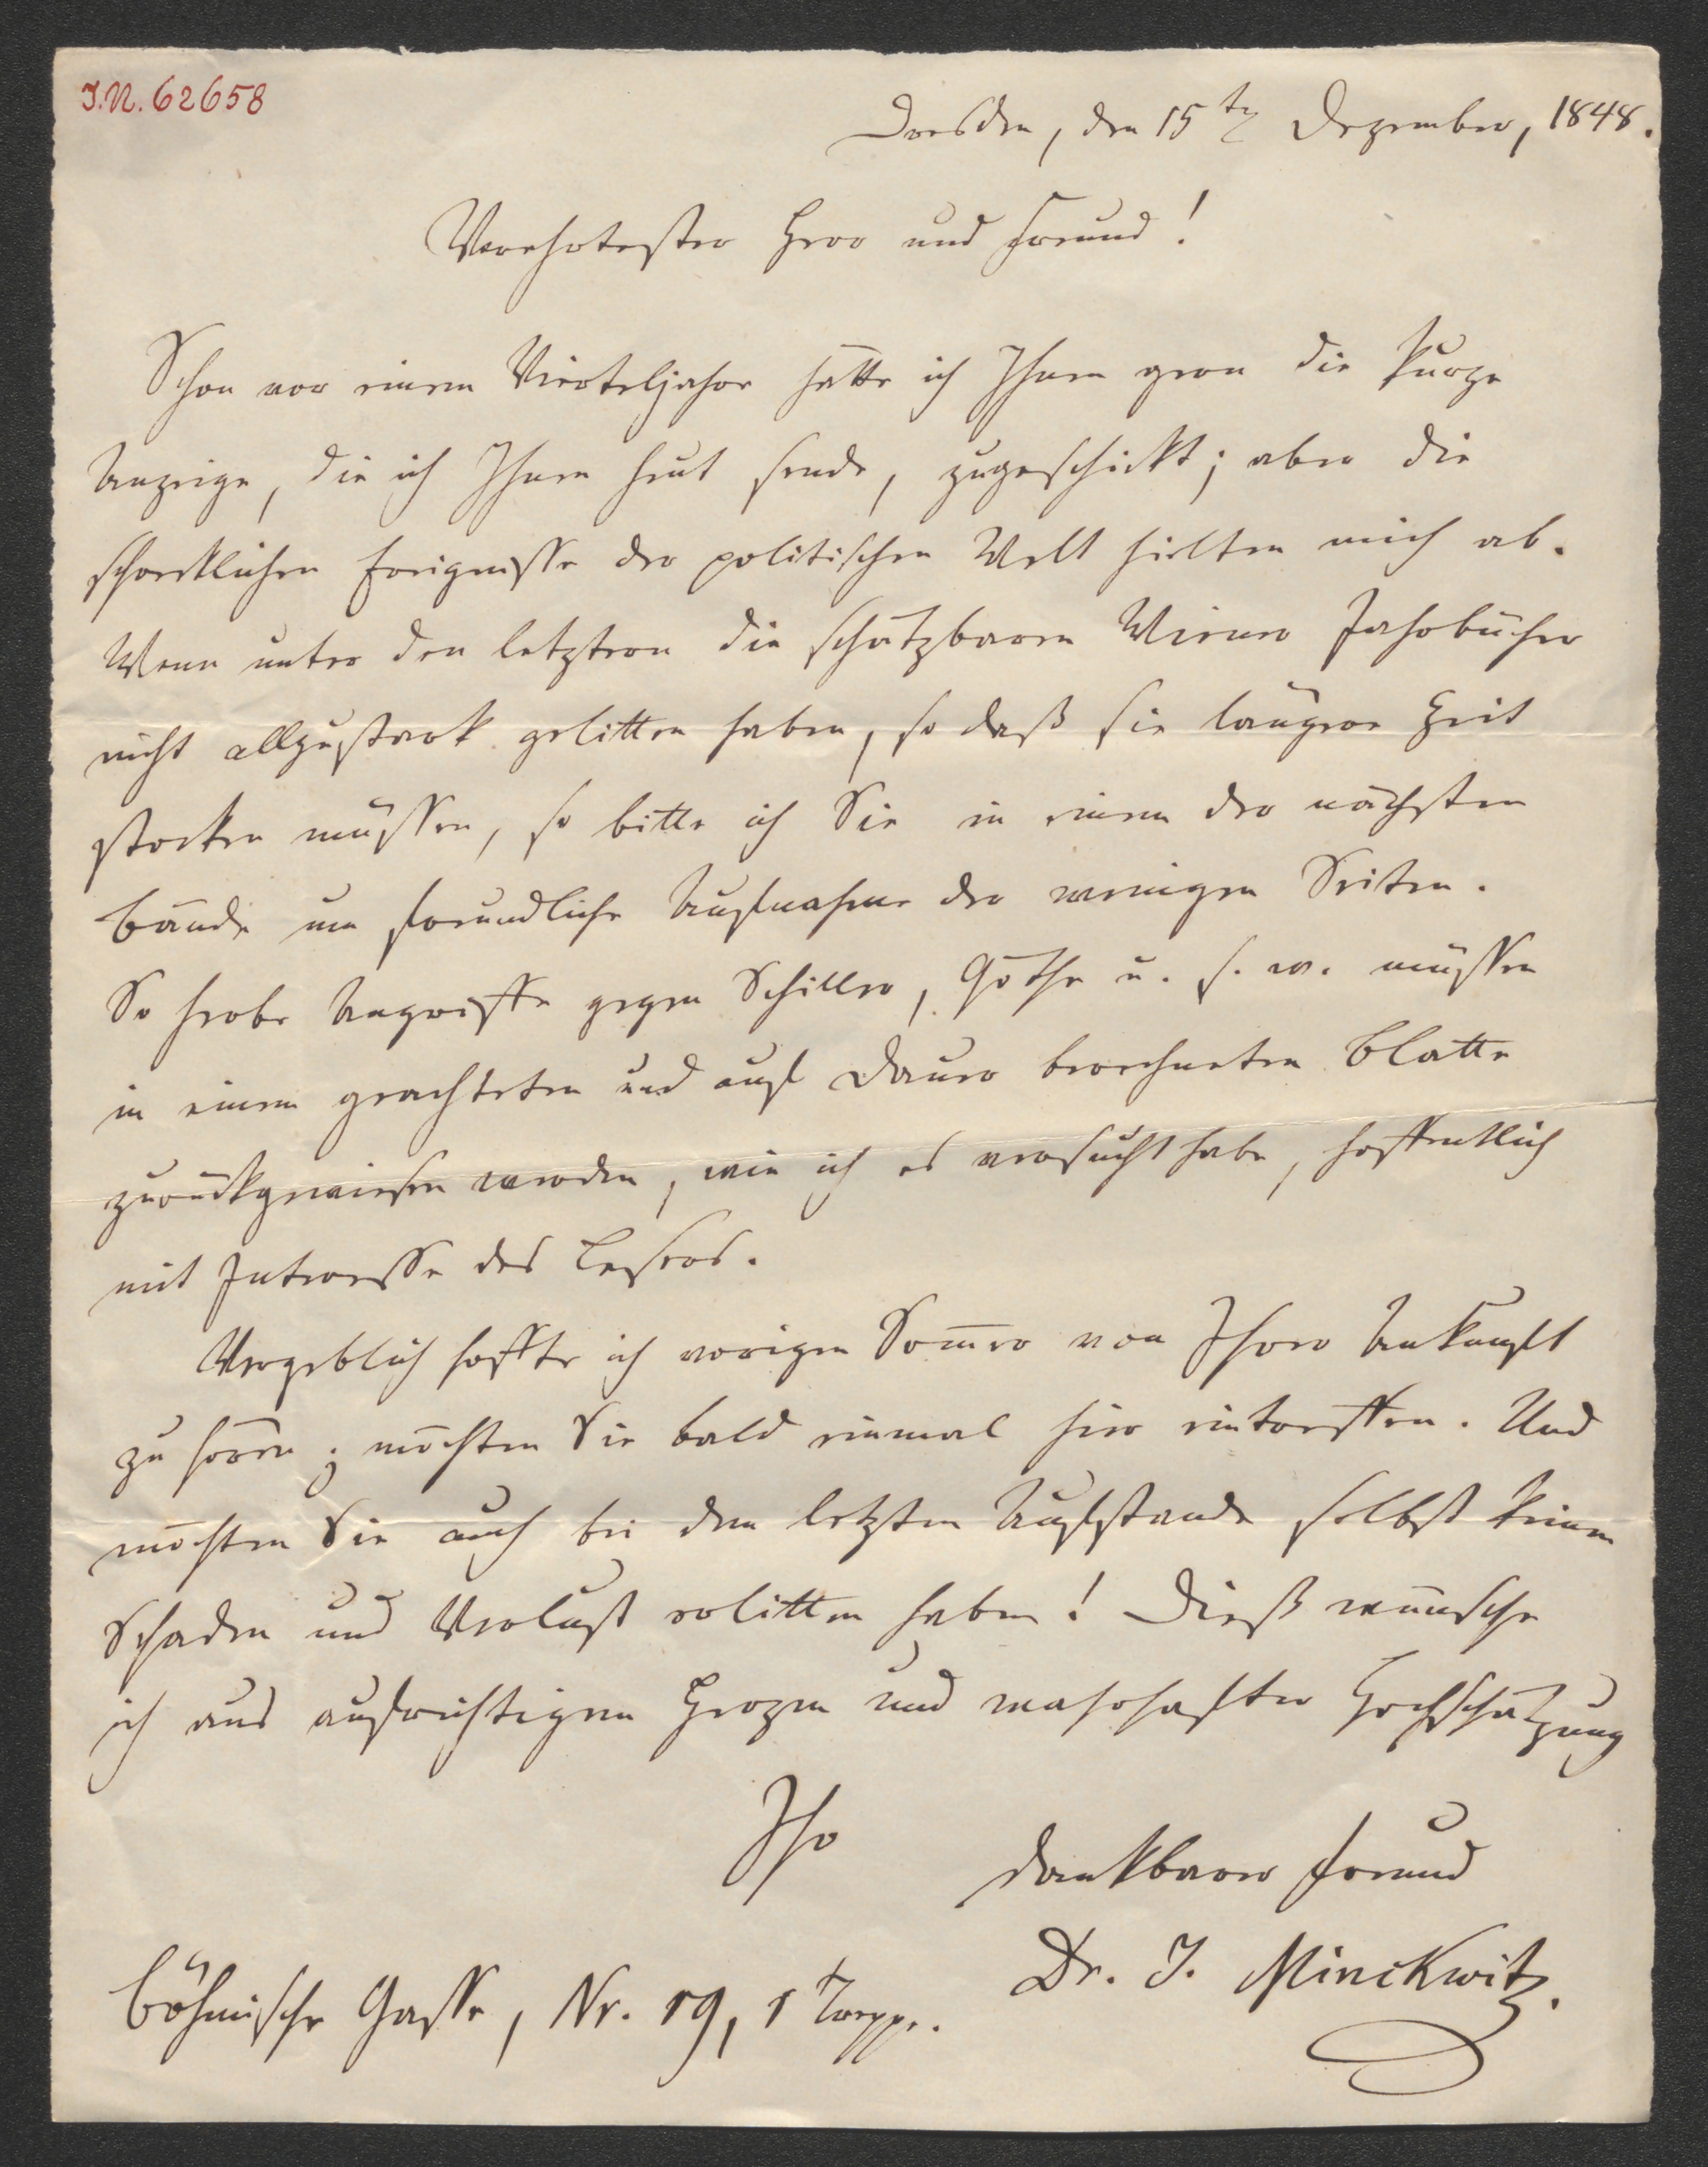 I.N. 62658
Dresden, den 15ten Dezember, 1848.
Verehrtester Herr und Freund!
Schon vor einem Vierteljahre hätte ich Ihnen gern die kurze
Anzeige, die ich Ihnen heut sende, zugeschickt; aber die
schrecklichen Ereignisse der politischen Welt hielten mich ab.
Wenn unter den letztern die schätzbaren Wiener Jahrbücher
nicht allzustark gelitten haben, so daß sie längere Zeit
stocken müssen, so bitte ich Sie in einem der nächsten
Bände um freundliche Aufnahme der wenigen Seiten.
So herbe Angriffe gegen Schiller, Göthe u. s. w. müssen
in einem geachteten und auf Dauer berechneten Blatte
zurückgewiesen werden, wie ich es versucht habe, hoffentlich
mit Interesse des Lesers.
Vergeblich hoffte ich vorigen Som̅er von Ihrer Ankunft
zu hören; möchten Sie bald einmal hier eintreffen. Und
möchten Sie auch bei dem letzten Aufstande selbst keinen
Schaden und Verlust erlitten haben! Dieß wünsche
ich aus aufrichtigem Herzen und wahrhafter Hochschätzung
Ihr
dankbarer Freund
Dr. J. Minckwitz.
Böhmische Gasse, Nr. 19, 1 Treppe.